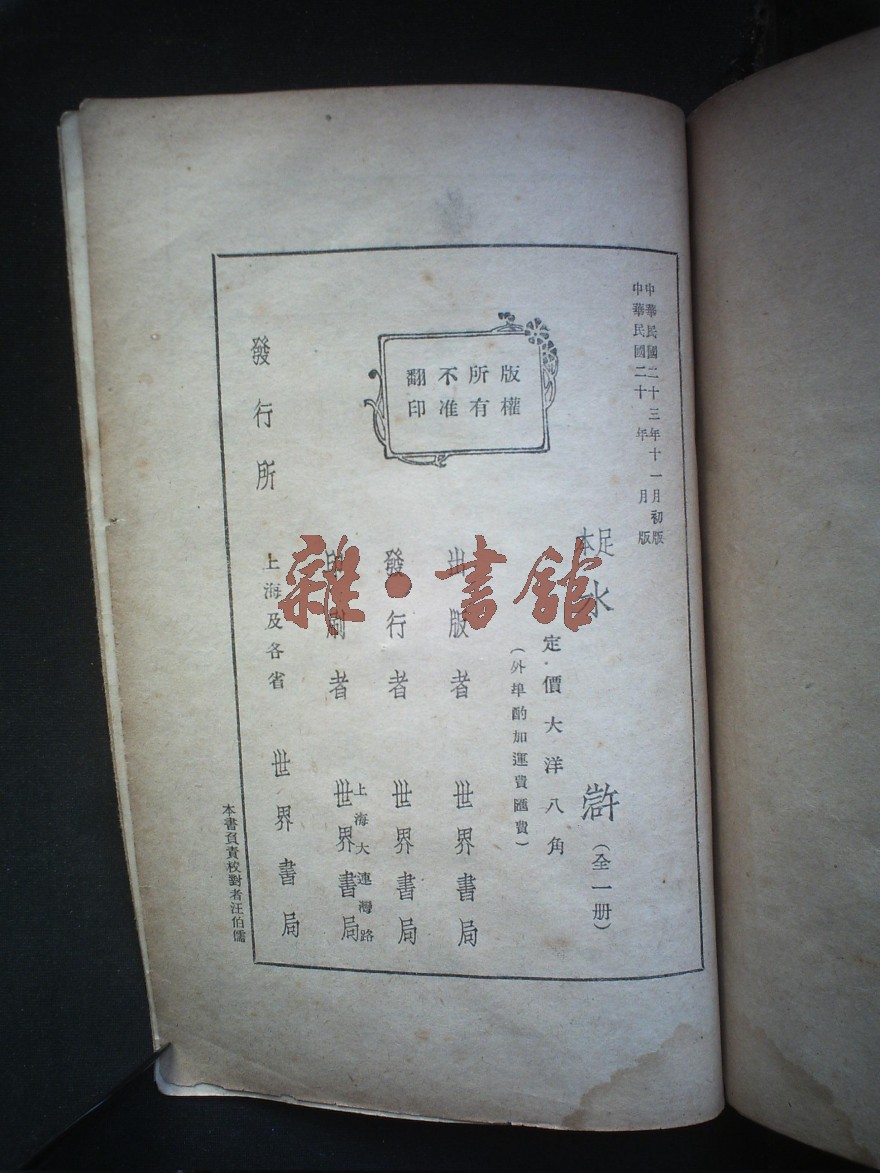 中華民國二十三年十一月初版
中華民國二十　年　月　版
版權
所有
不准
翻印
足本
水滸（全一册）
定價大洋八角
（外埠酌加運費匯費）
出版者　世界書局
發行者　世界書局
印刷者　上海大連灣路　世界書局
發行所　上海及各省　世界書局
本書負責校對者汪伯儒
雜·書館